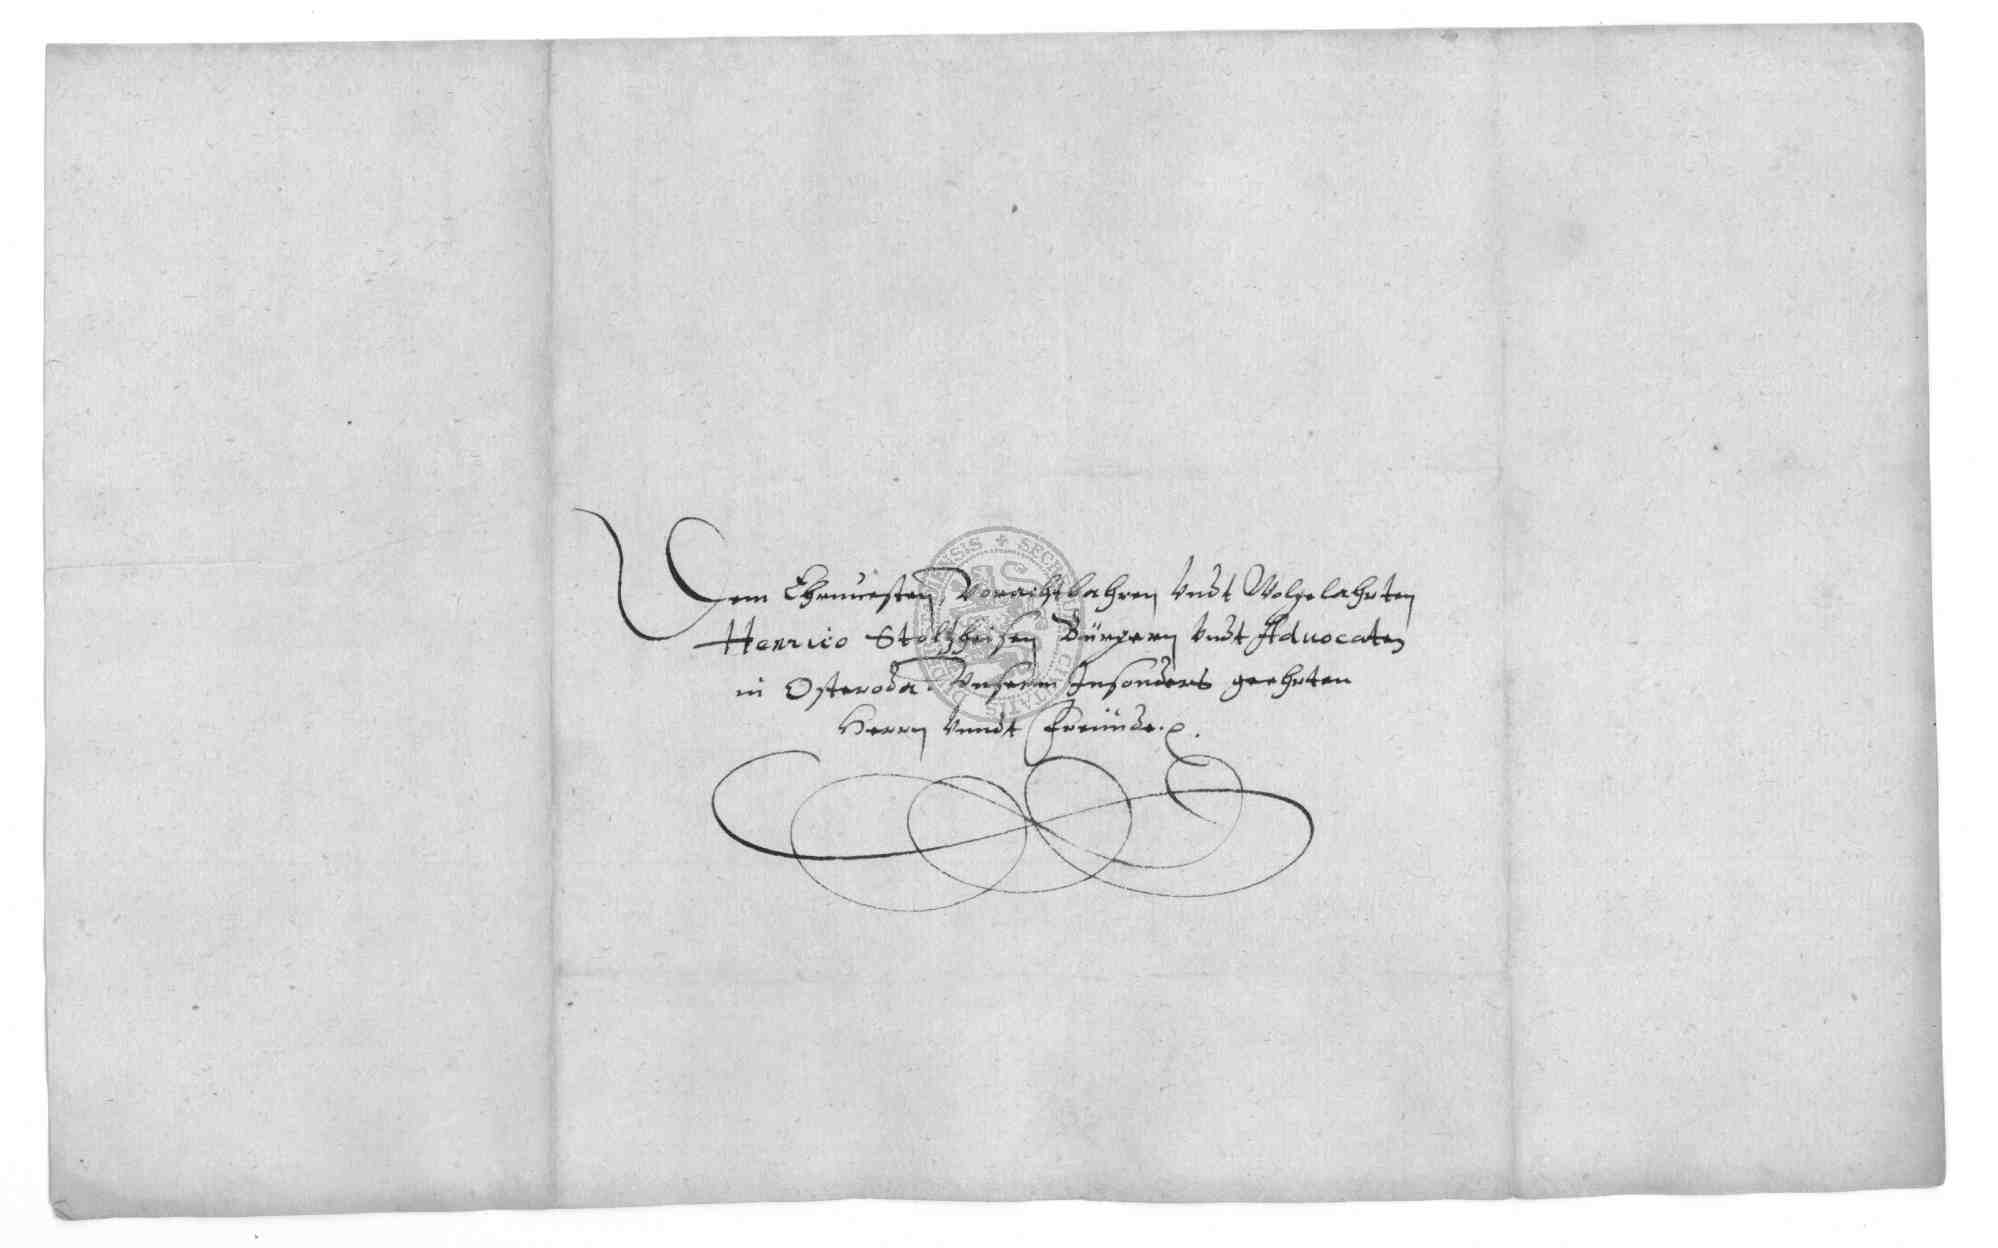 Dem Ehrnuesten, Vorachtbahren Vndt Wolgelahrten
Henrico Stoltzheisen Bürgern Vndt Aduocaten
in Osteroda. Vnserm Insonders geehrten
Herrn Vnndt Freünde.